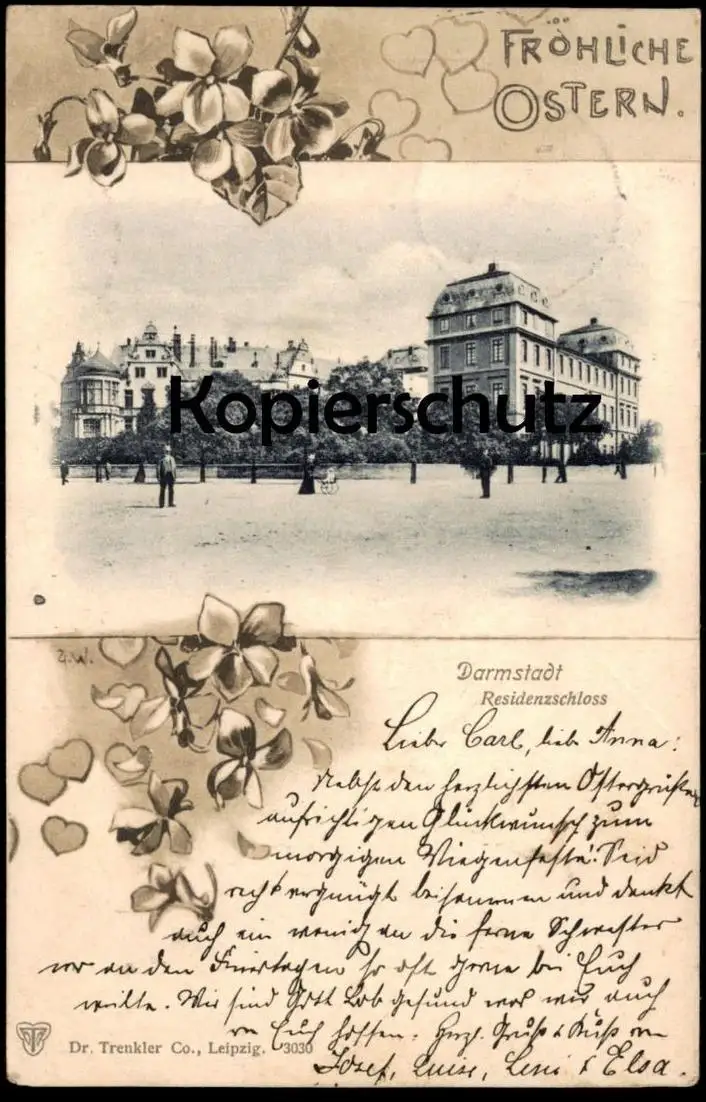 FRÖHLICHE
OSTERN.
Kopierschutz
G.W.
Darmstadt
Residenzschloss
Lieber Carl, liebe Anna:
Nebst den herzlichsten Ostergrüßen
aufrichtigen Glückwunsch zum
morgigen Wiegenfeste! Seid
recht vergnügt beisammen und denkt
auch ein wenig an die ferne Schwester
an den Feiertagen so oft gerne bei Euch
weilte. Wir sind Gott Lob gesund was wir auch
von Euch hoffen. Herzl. Gruß & Kuß von
Josef, Luise, Leni & Elsa.
Dr. Trenkler Co., Leipzig. 3030